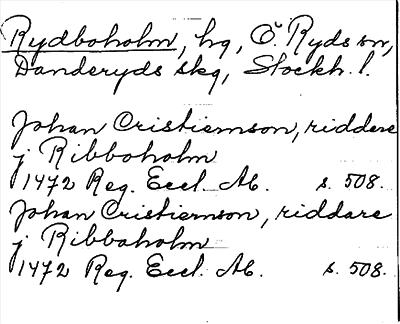 Rydboholm, hg, Ö. Ryds sn,
Danderyds skg, Stockh. l.
Johan Cristiernson, riddare
j Ribboholm
1472 Reg. Eccl. Ab. s. 508.
Johan Cristiernson, riddare
j Ribbaholm
1472 Reg. Eccl. Ab. s. 508.